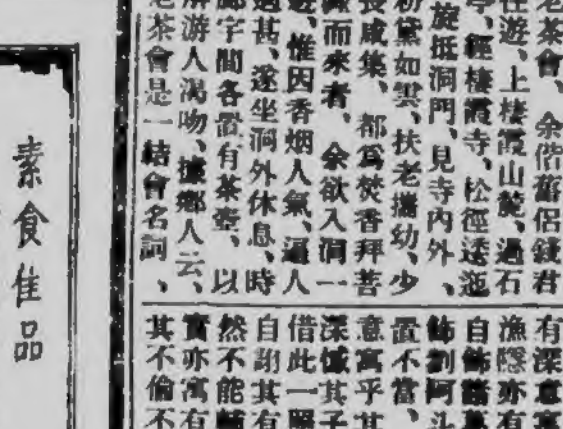 老茶會、余偕舊侶錢君
往遊、上棲霞山麓、過石
亭、經棲霞寺、松徑透迤
旋抵洞門、見寺內外、
粉黛如雲、扶老攜幼、少
長咸集、都爲焚香拜菩
而來者、余欲入洞一
遊、惟因香烟人氣、逼人
過甚、遂坐洞外休息、時
廊宇間各置有茶壺、以
游人渴吻、據鄉人云、
老茶會是一結會名詞、
有深意
漁隱亦有
自飾
飾劉阿斗
置不當、
意寓乎其
深憾其子
借此一
自謝其有
然不能
實亦寓有
其不倫不
素食佳品